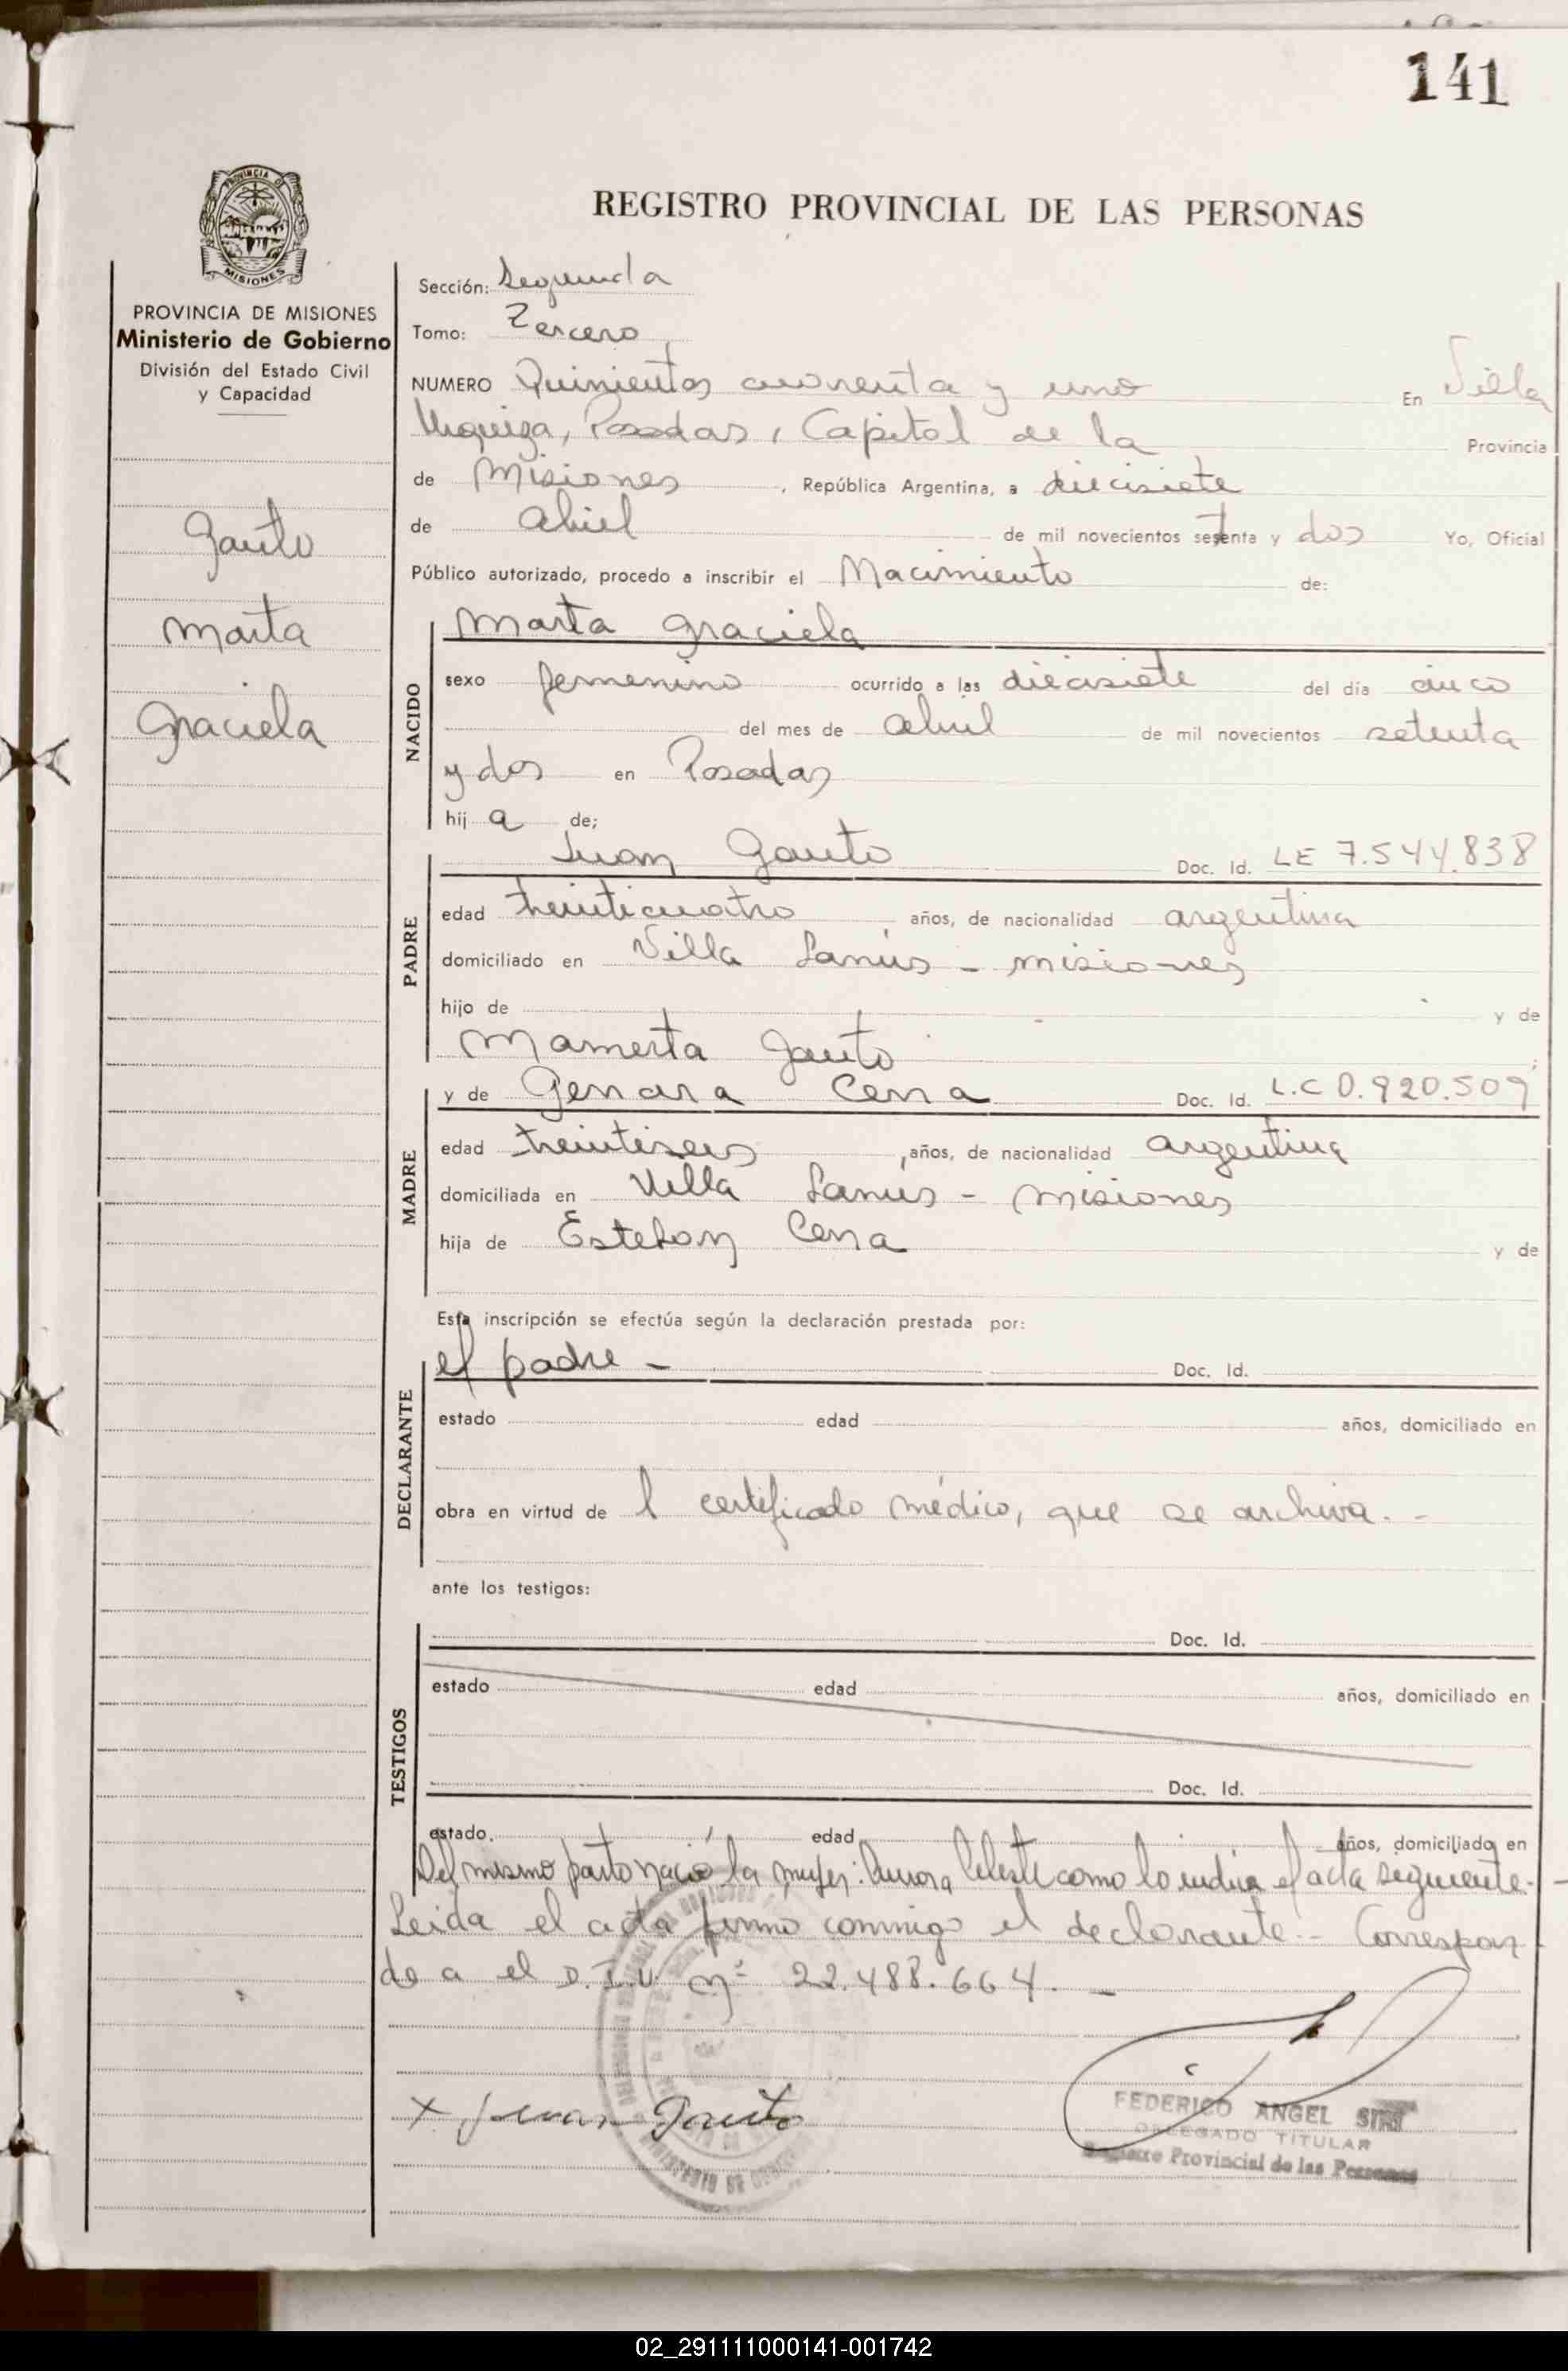 141
PROVINCIA D
MISIONES
REGISTRO PROVINCIAL DE LAS PERSONAS
PROVINCIA DE MISIONES
Ministerio de Gobierno
División del Estado Civil
y Capacidad
Gauto
Marta
Graciela
Sección: Segunda
Tomo: Tercero
NUMERO Quinientos cuarenta y uno En Villa
Urquiza, Posadas, Capital de la Provincia
de Misiones, República Argentina, a diecisiete
de abril de mil novecientos setenta y dos Yo, Oficial
Público autorizado, procedo a inscribir el Nacimiento de:
NACIDO
Marta Graciela
sexo femenino ocurrido a las diecisiete del día cinco
del mes de abril de mil novecientos setenta
y dos en Posadas
hij a de;
PADRE
Juan Gauto Doc. Id. LE 7.544.838
edad treinticuatro años, de nacionalidad argentina
domiciliado en Villa Lanús - Misiones
hijo de y de
Mamerta Gauto
MADRE
y de Genara Cena Doc. Id. L.C 0.920.509
edad treintiseis, años, de nacionalidad argentina
domiciliada en Villa Lanús - Misiones
hija de Esteban Cena y de
Esta inscripción se efectúa según la declaración prestada por:
DECLARANTE
el padre - Doc. Id.
estado edad años, domiciliado en
obra en virtud de l certificado médico, que se archiva. -
ante los testigos:
TESTIGOS
Doc. Id.
estado edad años, domiciliado en
Doc. Id.
estado edad años, domiciliado en
Del mismo parto nació la mujer: Aurora Celeste como lo indica el acta siguiente. -
Leida el acta firma conmigo el declarante. - Correspon-
de a el D.I.U. nº 22.488.664. -
x Juan Gauto
FEDERICO ANGEL
DELEGADO TITULAR
Registro Provincial de las Personas
02_291111000141-001742